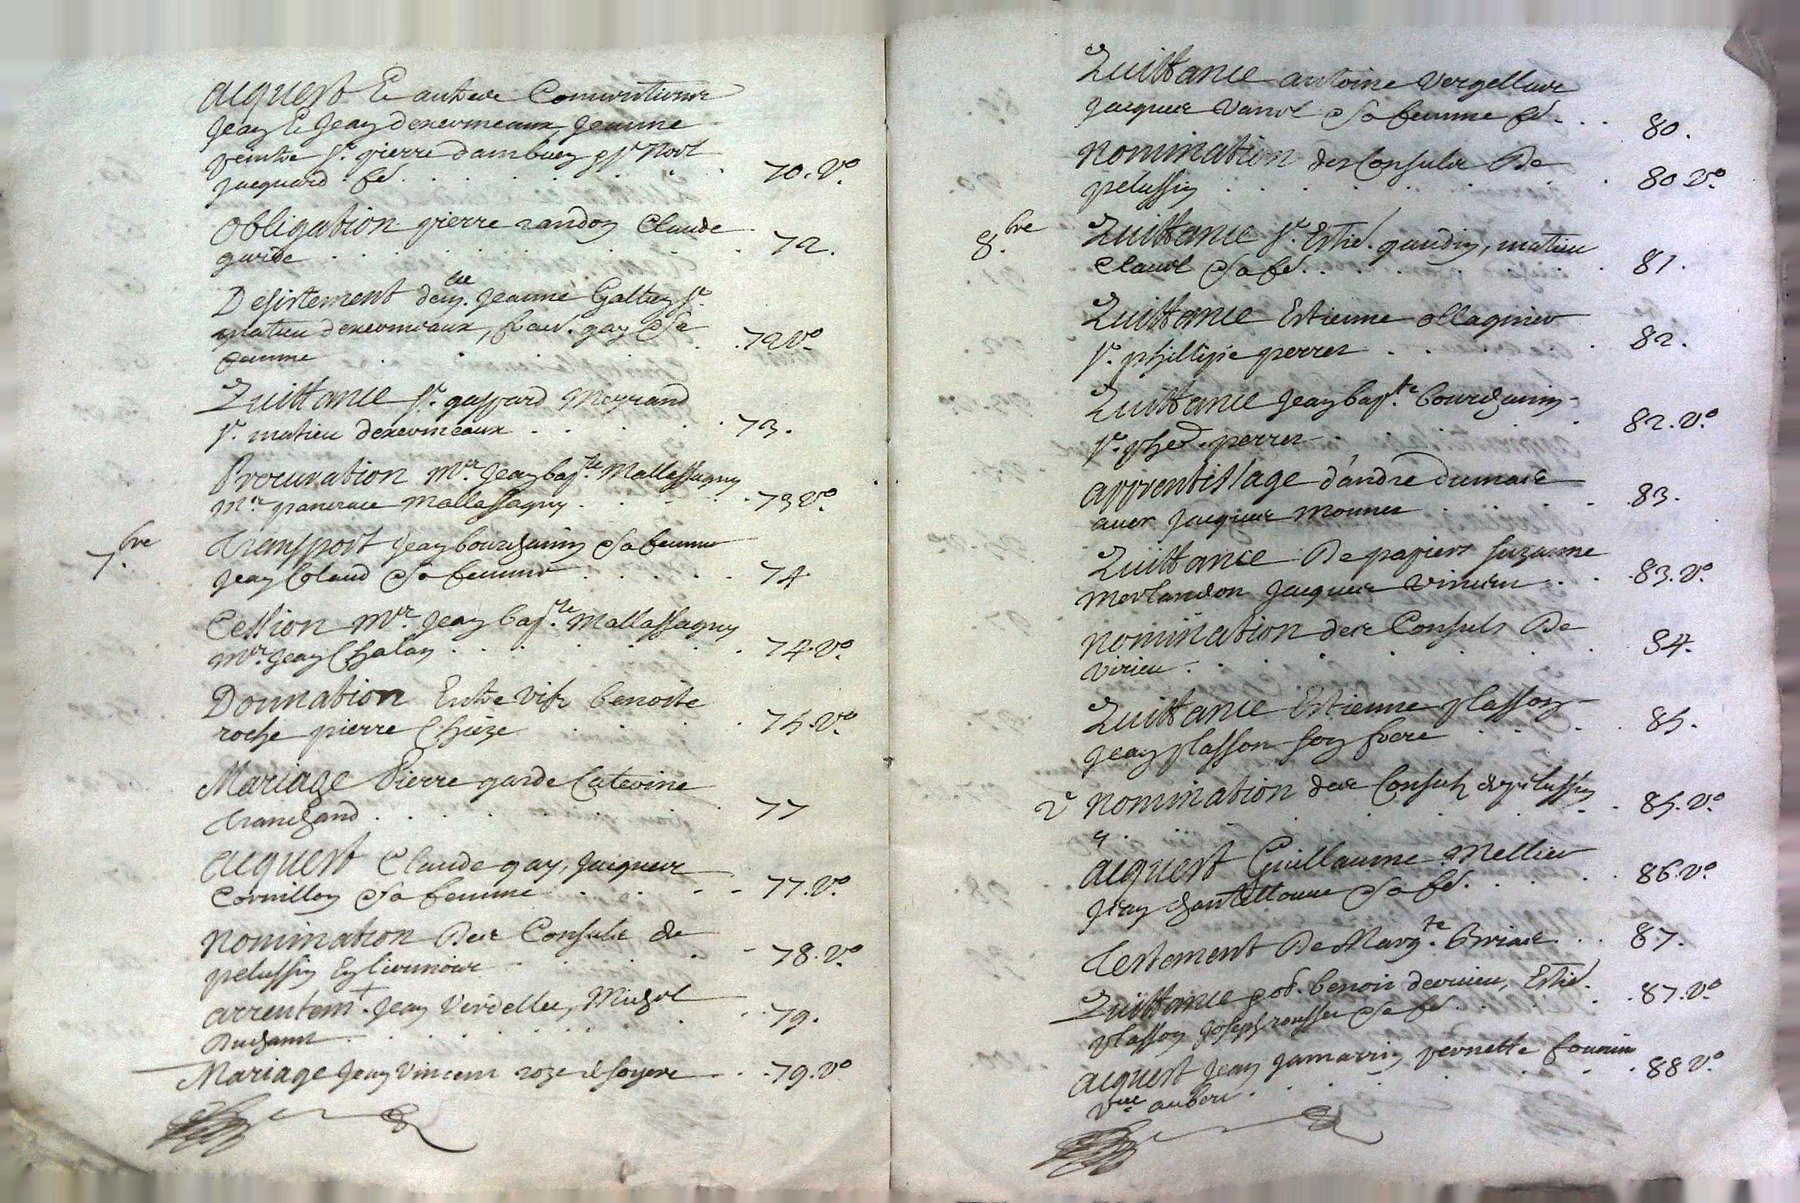 acquest Et autres Conventions
Jean Et Jean dexermieaux, Jeanne
pierre dambuen Noel
Jacquard fé. 70. Vo.
Obligation pierre randon Claude
garde 72.
Desistement Jeanne Galtier Sr.
matieu dexermieaux, gay & Sa
femme 72 Vo.
Quittance Sr. gaspard Meyrand
Sr. matieu dexermieaux 73.
Procuration Mre. Jean bapte. Mallassagny
Mre. pancrace Mallassagny 73 Vo.
7.bre
Transport Jean bourchanin & Sa femme
Jean Coland & Sa femme 74
Cession Mre Jean bapte. Mallassagny
Mre. Jean Chalan 74. Vo.
Donnation Entre Vifs benoite
roche pierre Chieze 75. Vo.
Mariage Pierre garde Caterine
Tranchand 77
acquest Claude gay, Jacques
Cornillon & Sa femme 77. Vo.
Nomination Des Consuls de
pelussin 78. Vo
arrentemt. Jean Verdellet, Michel
79.
Mariage Jean Vincent roze 79. Vo
Quittance antoine Vergellas
Jacques Vanel & Sa femme fé. 80.
Nomination des Consuls De
pelussin 80 Vo.
8.bre
Quittance Sr. Estie. gaudin, matieu
Claurd & Sa fé. 81.
Quittance Estienne ollagnier
Sr. phillipe perret 82.
Quittance Jean bapte. bourchanin
Sr. phe. perret 82. Vo.
apprentissage d'andré dumas
avec Jacques monnet 83.
Quittance De papiers Suzanne
Merlandon Jacques Vincent 83. Vo.
Nomination des Consuls De
Virieu 84.
Quittance Estienne plasson
Jean plasson Son frere 85.
Nomination des Consuls de pelussin 85. Vo
acquest Guillaume Mellier
Jean chantelouve & Sa fé. 86. Vo.
Testement De Margte. 87.
Quittance benoit dervieu, Estie.
plasson Joseph rousset & Sa fé. 87. Vo
acquest Jean Jamarrin pernette fournier
Vve aubert. 88 Vo.